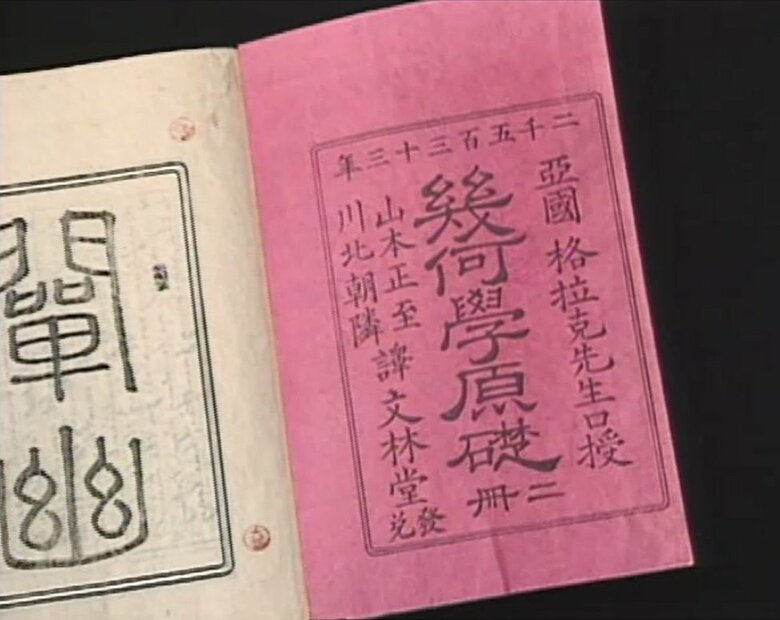 二千五百三十三年
亞國 格拉克先生口授
幾何學原礎
二冊
山本正至
川北朝隣
譯 文林堂
發兌
闡幽